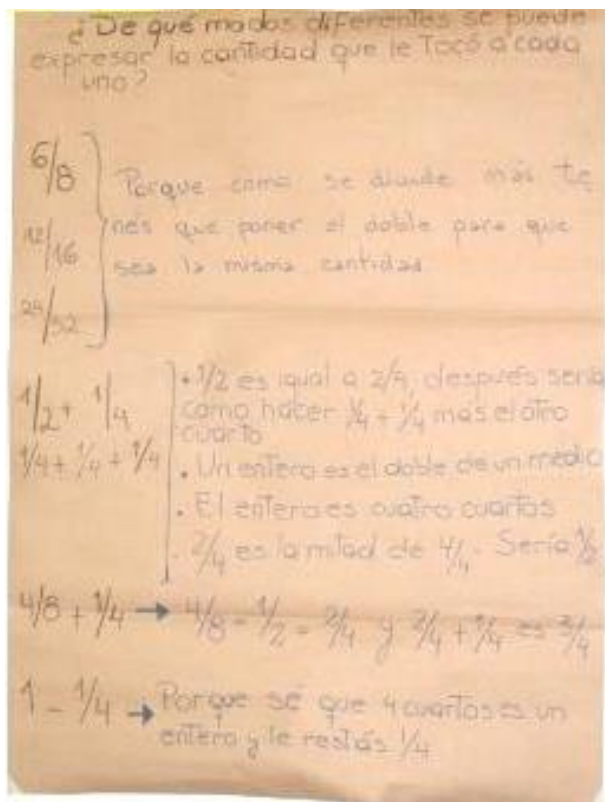 ¿De qué modos diferentes se puede
expresar la cantidad que le Tocó a cada
uno?
6/8
Porque como se divide más te
nés que poner el doble para que
12/16
sea la misma cantidad
24/32
1/2 + 1/4
1/4 + 1/4 + 1/4
• 1/2 es igual a 2/4, después sería
como hacer 1/4 + 1/4 más el otro
cuarto
• Un entero es el doble de un medio
• El entero es cuatro cuartos
. 2/4 es la mitad de 4/4. Sería 1/2
4/8 + 1/4 → 4/8 = 1/2 = 2/4 y 2/4 + 1/4 es 3/4
1 - 1/4 → Porque sé que 4 cuartos es un
entero y le restás 1/4